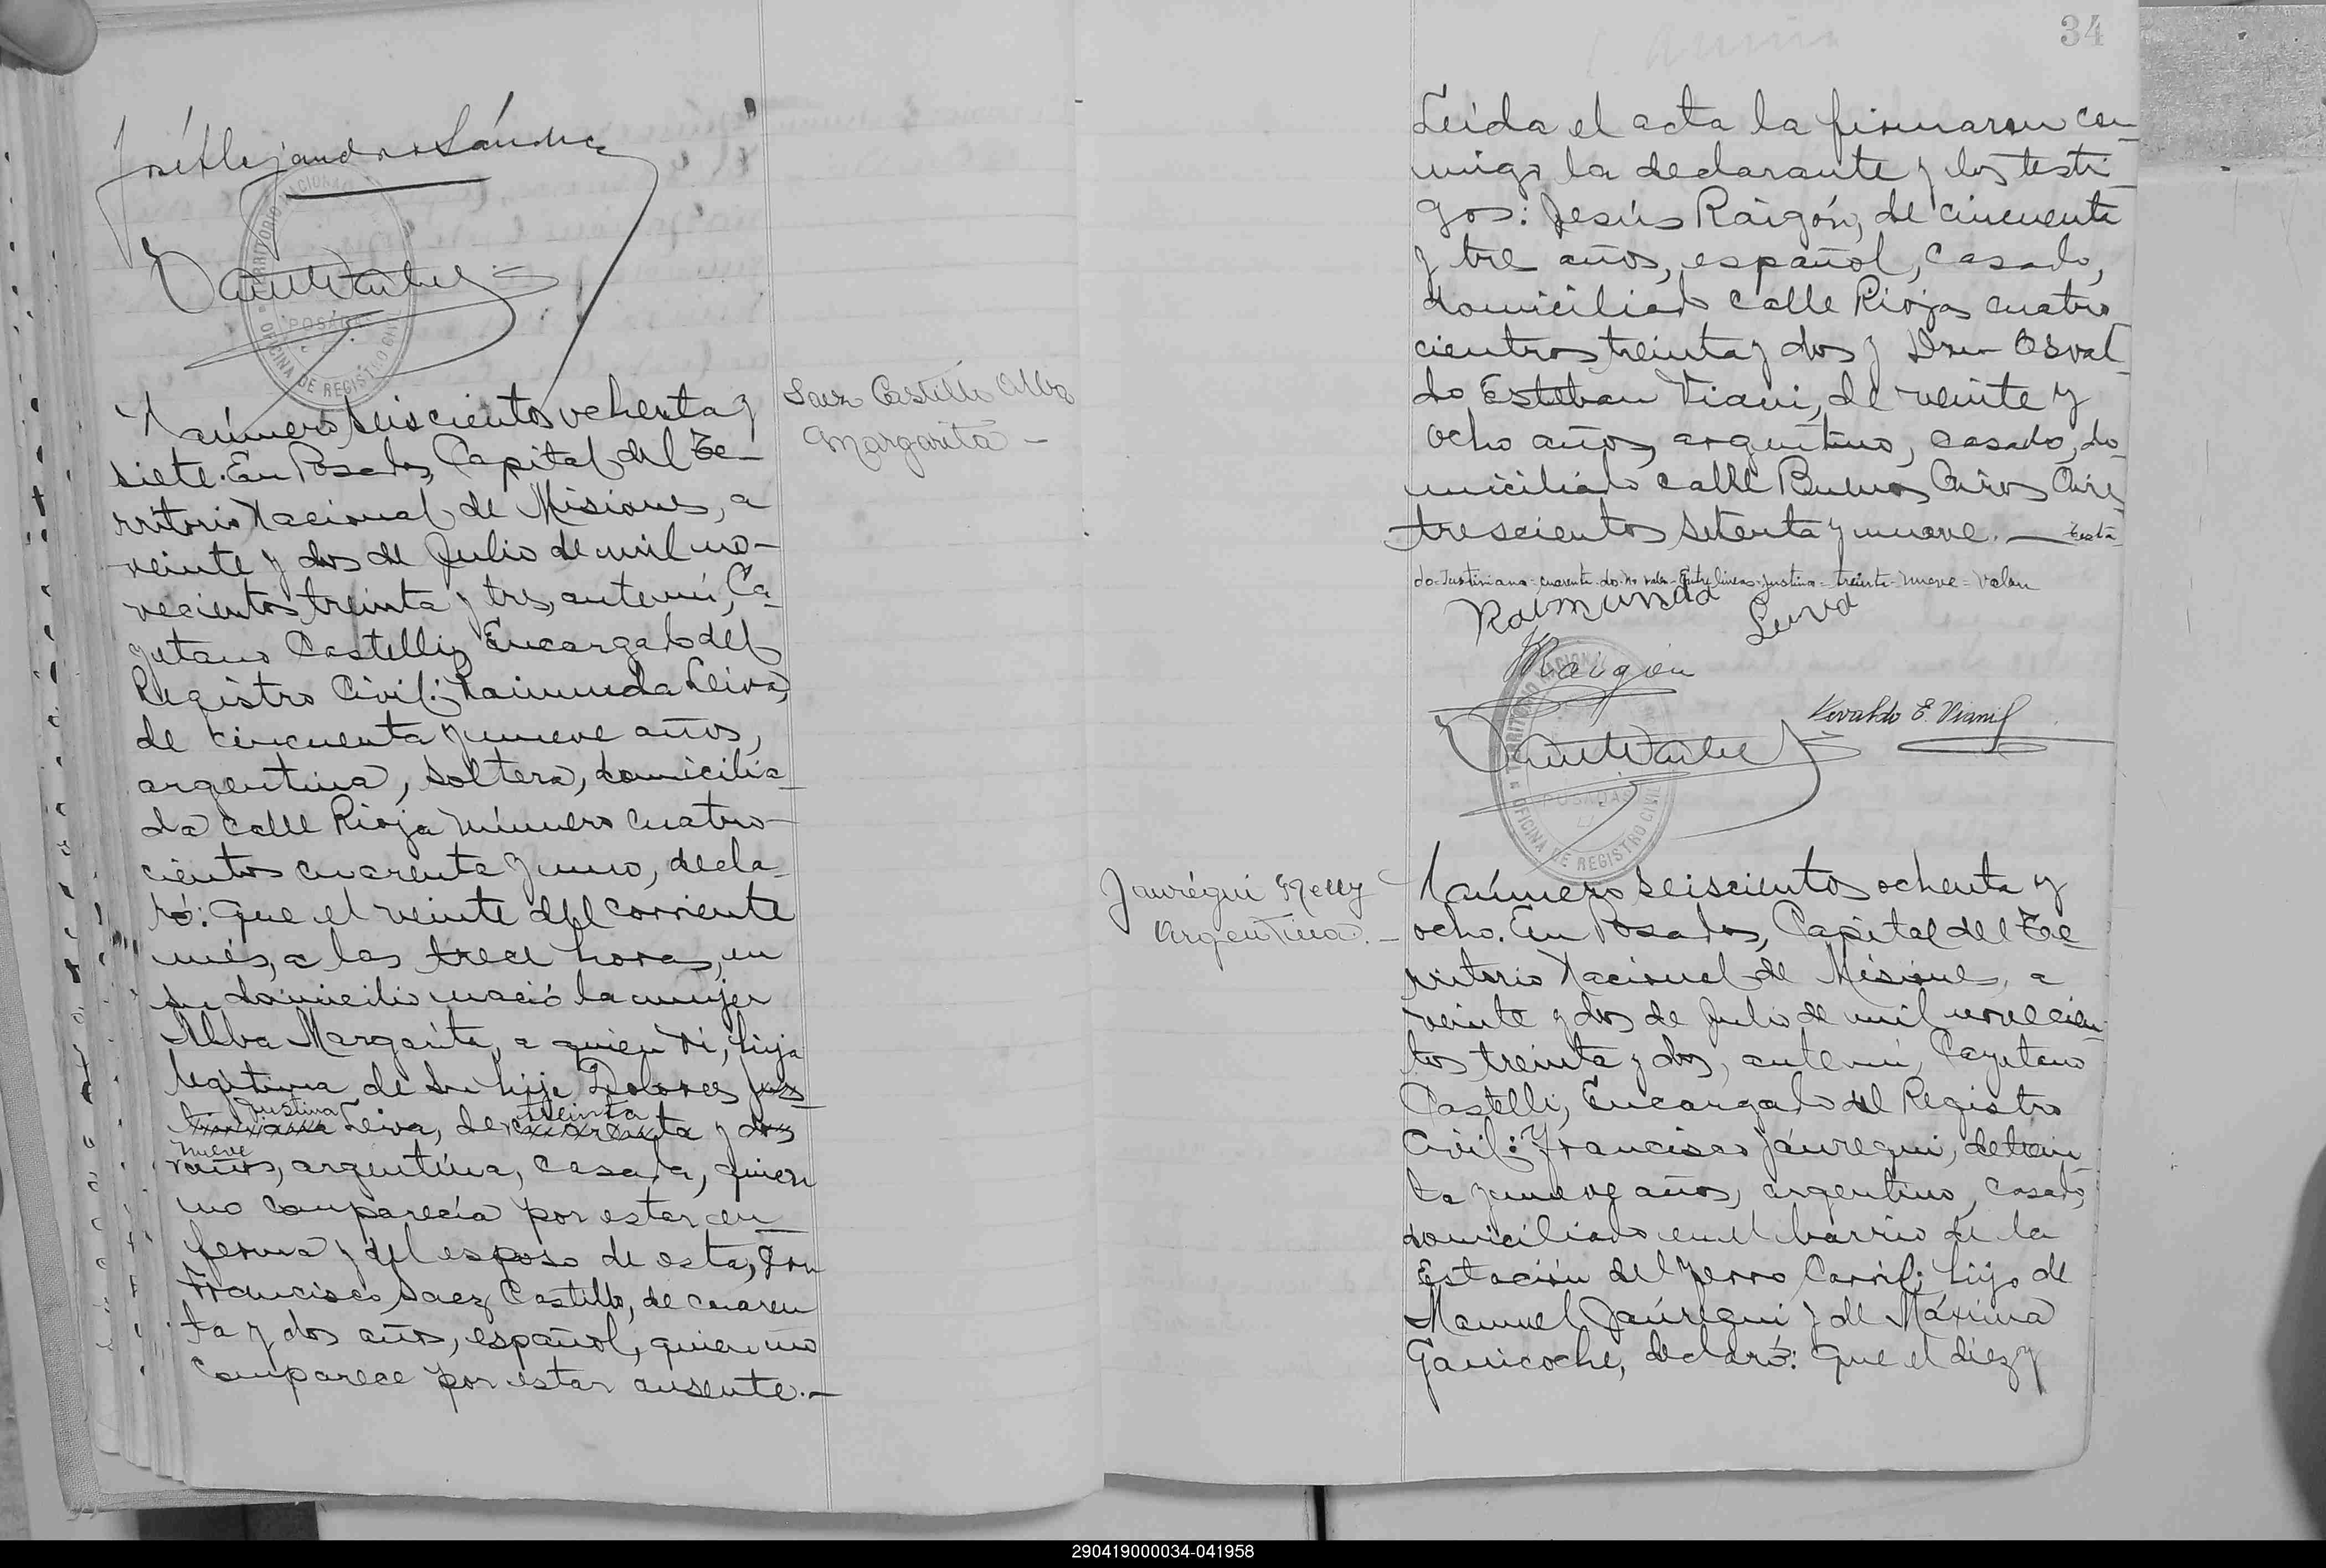 José Alejandro Sánchez
TERRITORIO NACIONAL
POSADAS
OFICINA DE REGISTRO CIVIL
Número seiscientos ochenta y
siete. En Posadas, Capital del Te-
rritorio Nacional de Misiones, a
veinte y dos de Julio de mil no-
vecientos treinta y tres, ante mí, Ca-
yetano Castelli, Encargado del
Registro Civil: Raimunda Leiva,
de cincuenta y nueve años,
argentina, soltera, domicilia-
da calle Rioja número cuatro-
cientos cuarenta y uno, decla-
ró: que el veinte del corriente
més, a las trece horas, en
su domicilio nació la mujer
Alba Margarita, a quien ví, hija
legítima de su hija Dolores Jus-
Justina treinta
tiniana Leiva, de cuarenta y dos
nueve
años, argentina, casada, quien
no comparecía por estar en-
ferma y del esposo de esta, don
Francisco Saez Castillo, de cuaren
ta y dos años, español, quien no
comparece por estar ausente.-
Saez Castillo Alba
Margarita -
34
Leida el acta la firmaron con-
migo la declarante y los testi-
gos: Jesús Raigón, de cincuenta
y tre años, español, casado,
domiciliado calle Rioja cuatro
cientros treinta y dos y Don Osval-
do Esteban Viani, de veinte y
ocho años, argentino, casado, do-
miciliado calle Buenos Aires Aire
trescientos setenta y nueve. - Testa-
do-Justiniana-cuarenta-dos-No valen-Entre lineas-Justina-treinta-nueve-Valen
Raimunda Leiva
J Raigón
Osvaldo E. Viani
TERRITORIO NACIONAL
POSADAS
OFICINA DE REGISTRO CIVIL
Jaurégui Nelly
Argentina. -
Número seiscientos ochenta y
ocho. En Posadas, Capital del Te
rritorio Nacional de Misiones, a
veinte y dos de Julio de mil novecien-
tos treinta y dos, ante mí, Cayetano
Castelli, Encargado del Registro
Civil: Francisco Jáuregui, de trein-
ta y nueve años, argentino, casado,
domiciliado en el barrio de la
Estación del Ferro Carril; hijo de
Manuel Jaúregui y de Máxima
Ganicoche, declaró: Que el diez y
290419000034-041958